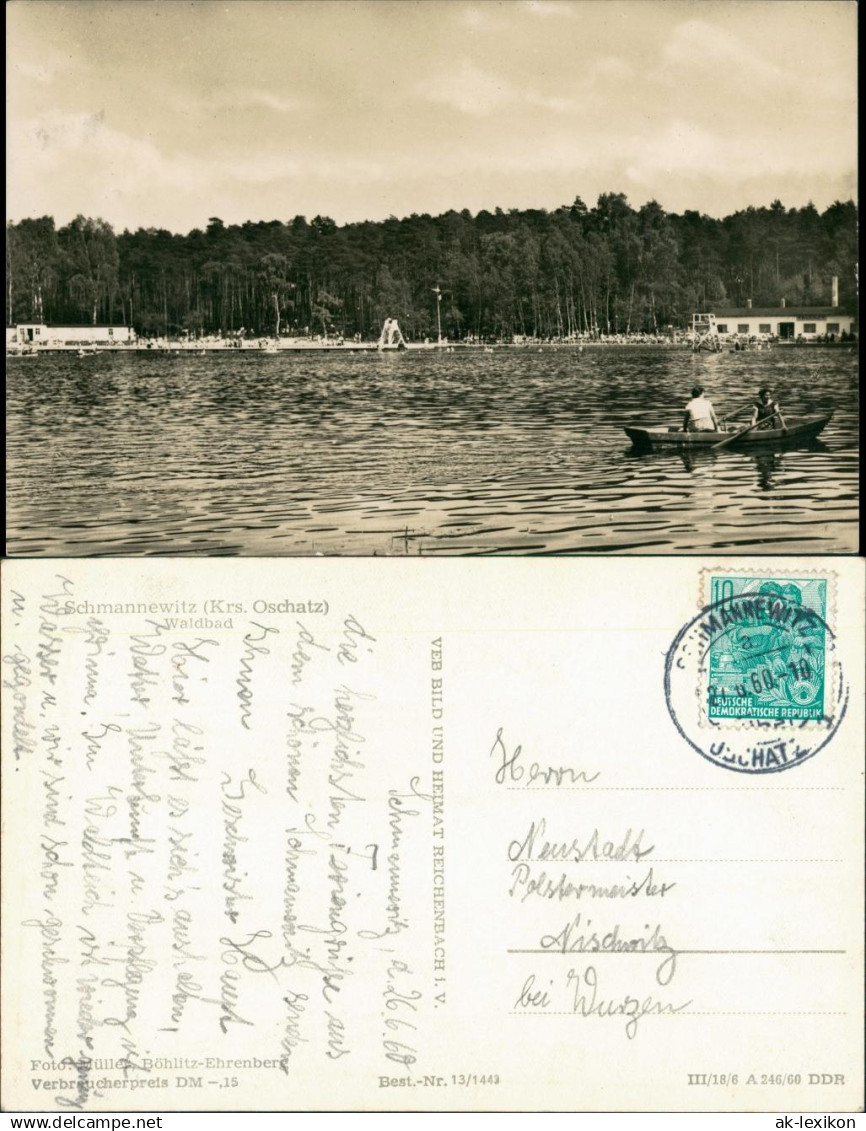 Schmannewitz (Krs. Oschatz)
Waldbad
Schmannewitz, d. 26.6.60
die herzlichsten Feriengrüße aus
dem schönen Schmannewitz senden
Ihnen Geschwister
Hier läßt es sich's aushalten,
Wetter, Unterkunft u. Verpflegung ist
prima. Im Waldteich ist wieder genug
Wasser u. wir sind schon geschwommen
u. gegondelt.
VEB BILD UND HEIMAT REICHENBACH i. V.
10
DEUTSCHE
DEMOKRATISCHE REPUBLIK
SCHMANNEWITZ
a
.6.60.-10
OSCHATZ
Herrn
Neustadt
Polstermeister
Nischwitz
bei Wurzen
Foto: Müller, Böhlitz-Ehrenberg
Verbraucherpreis DM –,15
Best.-Nr. 13/1443
III/18/6 A 246/60 DDR
ak-lexikon